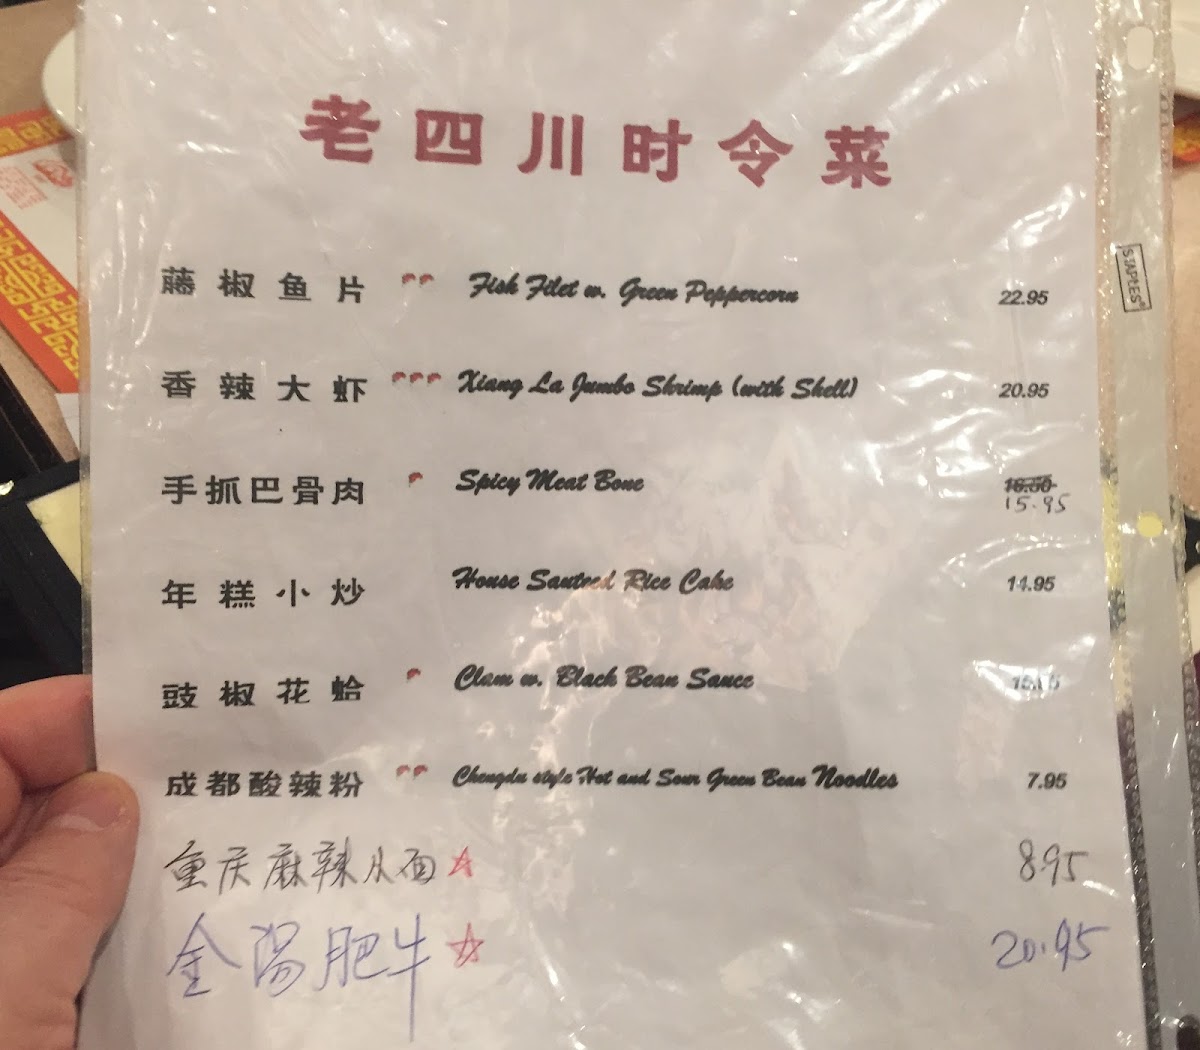 老四川时令菜
藤椒鱼片 Fish Filet w. Green Peppercorn 22.95
香辣大虾 Xiang La Jumbo Shrimp (with Shell) 20.95
手抓巴骨肉 Spicy Meat Bone 16.50 15.95
年糕小炒 House Sauteed Rice Cake 14.95
豉椒花蛤 Clam w. Black Bean Sauce
成都酸辣粉 Chengdu style Hot and Sour Green Bean Noodles 7.95
重庆麻辣小面 8.95
金汤肥牛 20.95
STAPLES